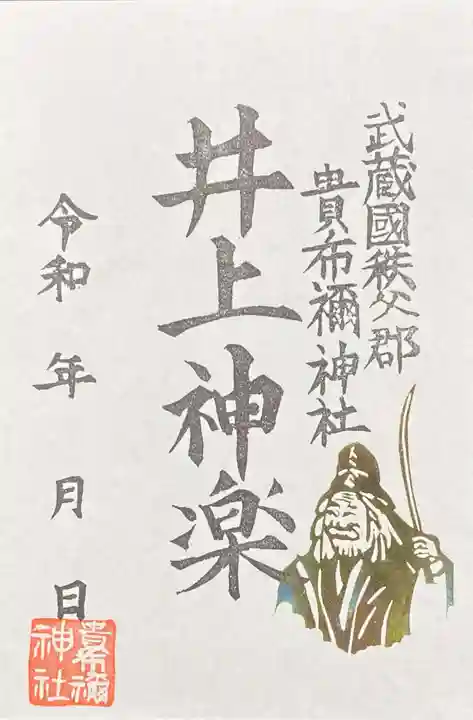 武蔵國秩父郡
貴布禰神社
井上神楽
令和 年 月 日
貴布禰
神社